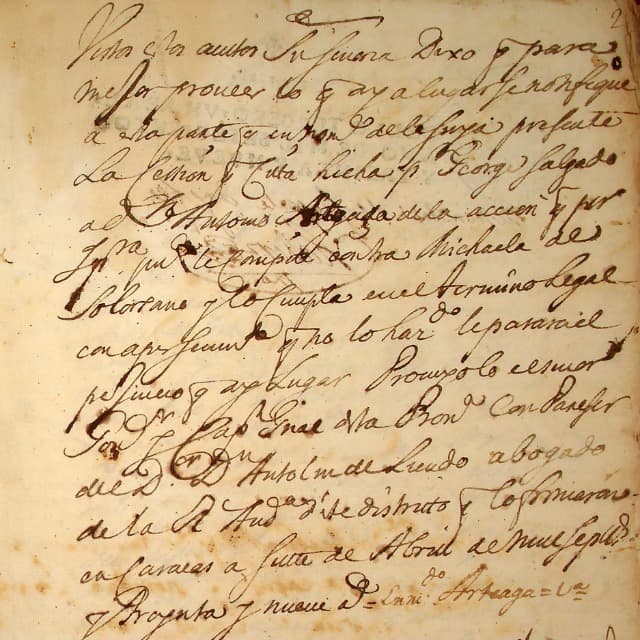 2
Vistos estos autos Su señoria Dixo q para
mejor proveer lo q aya lugar se notifique
a esta parte q en nomᵉ de la suya presente
La Cession q Cita hecha pʳ George Salgado
a Dⁿ Antonio Arteaga de la accion q por
le Compete contra Michaela de
Solorzano y lo Cumpla en el termino Legal
con apersevimᵗᵒ q no lo harᵈᵒ le parara el
persuicio q aya Lugar Proveyolo el señor
Govʳ y Capⁿ Gral desta Provᵃ Con Pareser
del Dʳ Dⁿ Antolin de Liendo abogado
de la Rˡ Audᵃ deste distrito y lo firmaron
en Caracas a siette de Abril de mill septᵒˢ
y treynta y nueve aˢ = Arteaga =